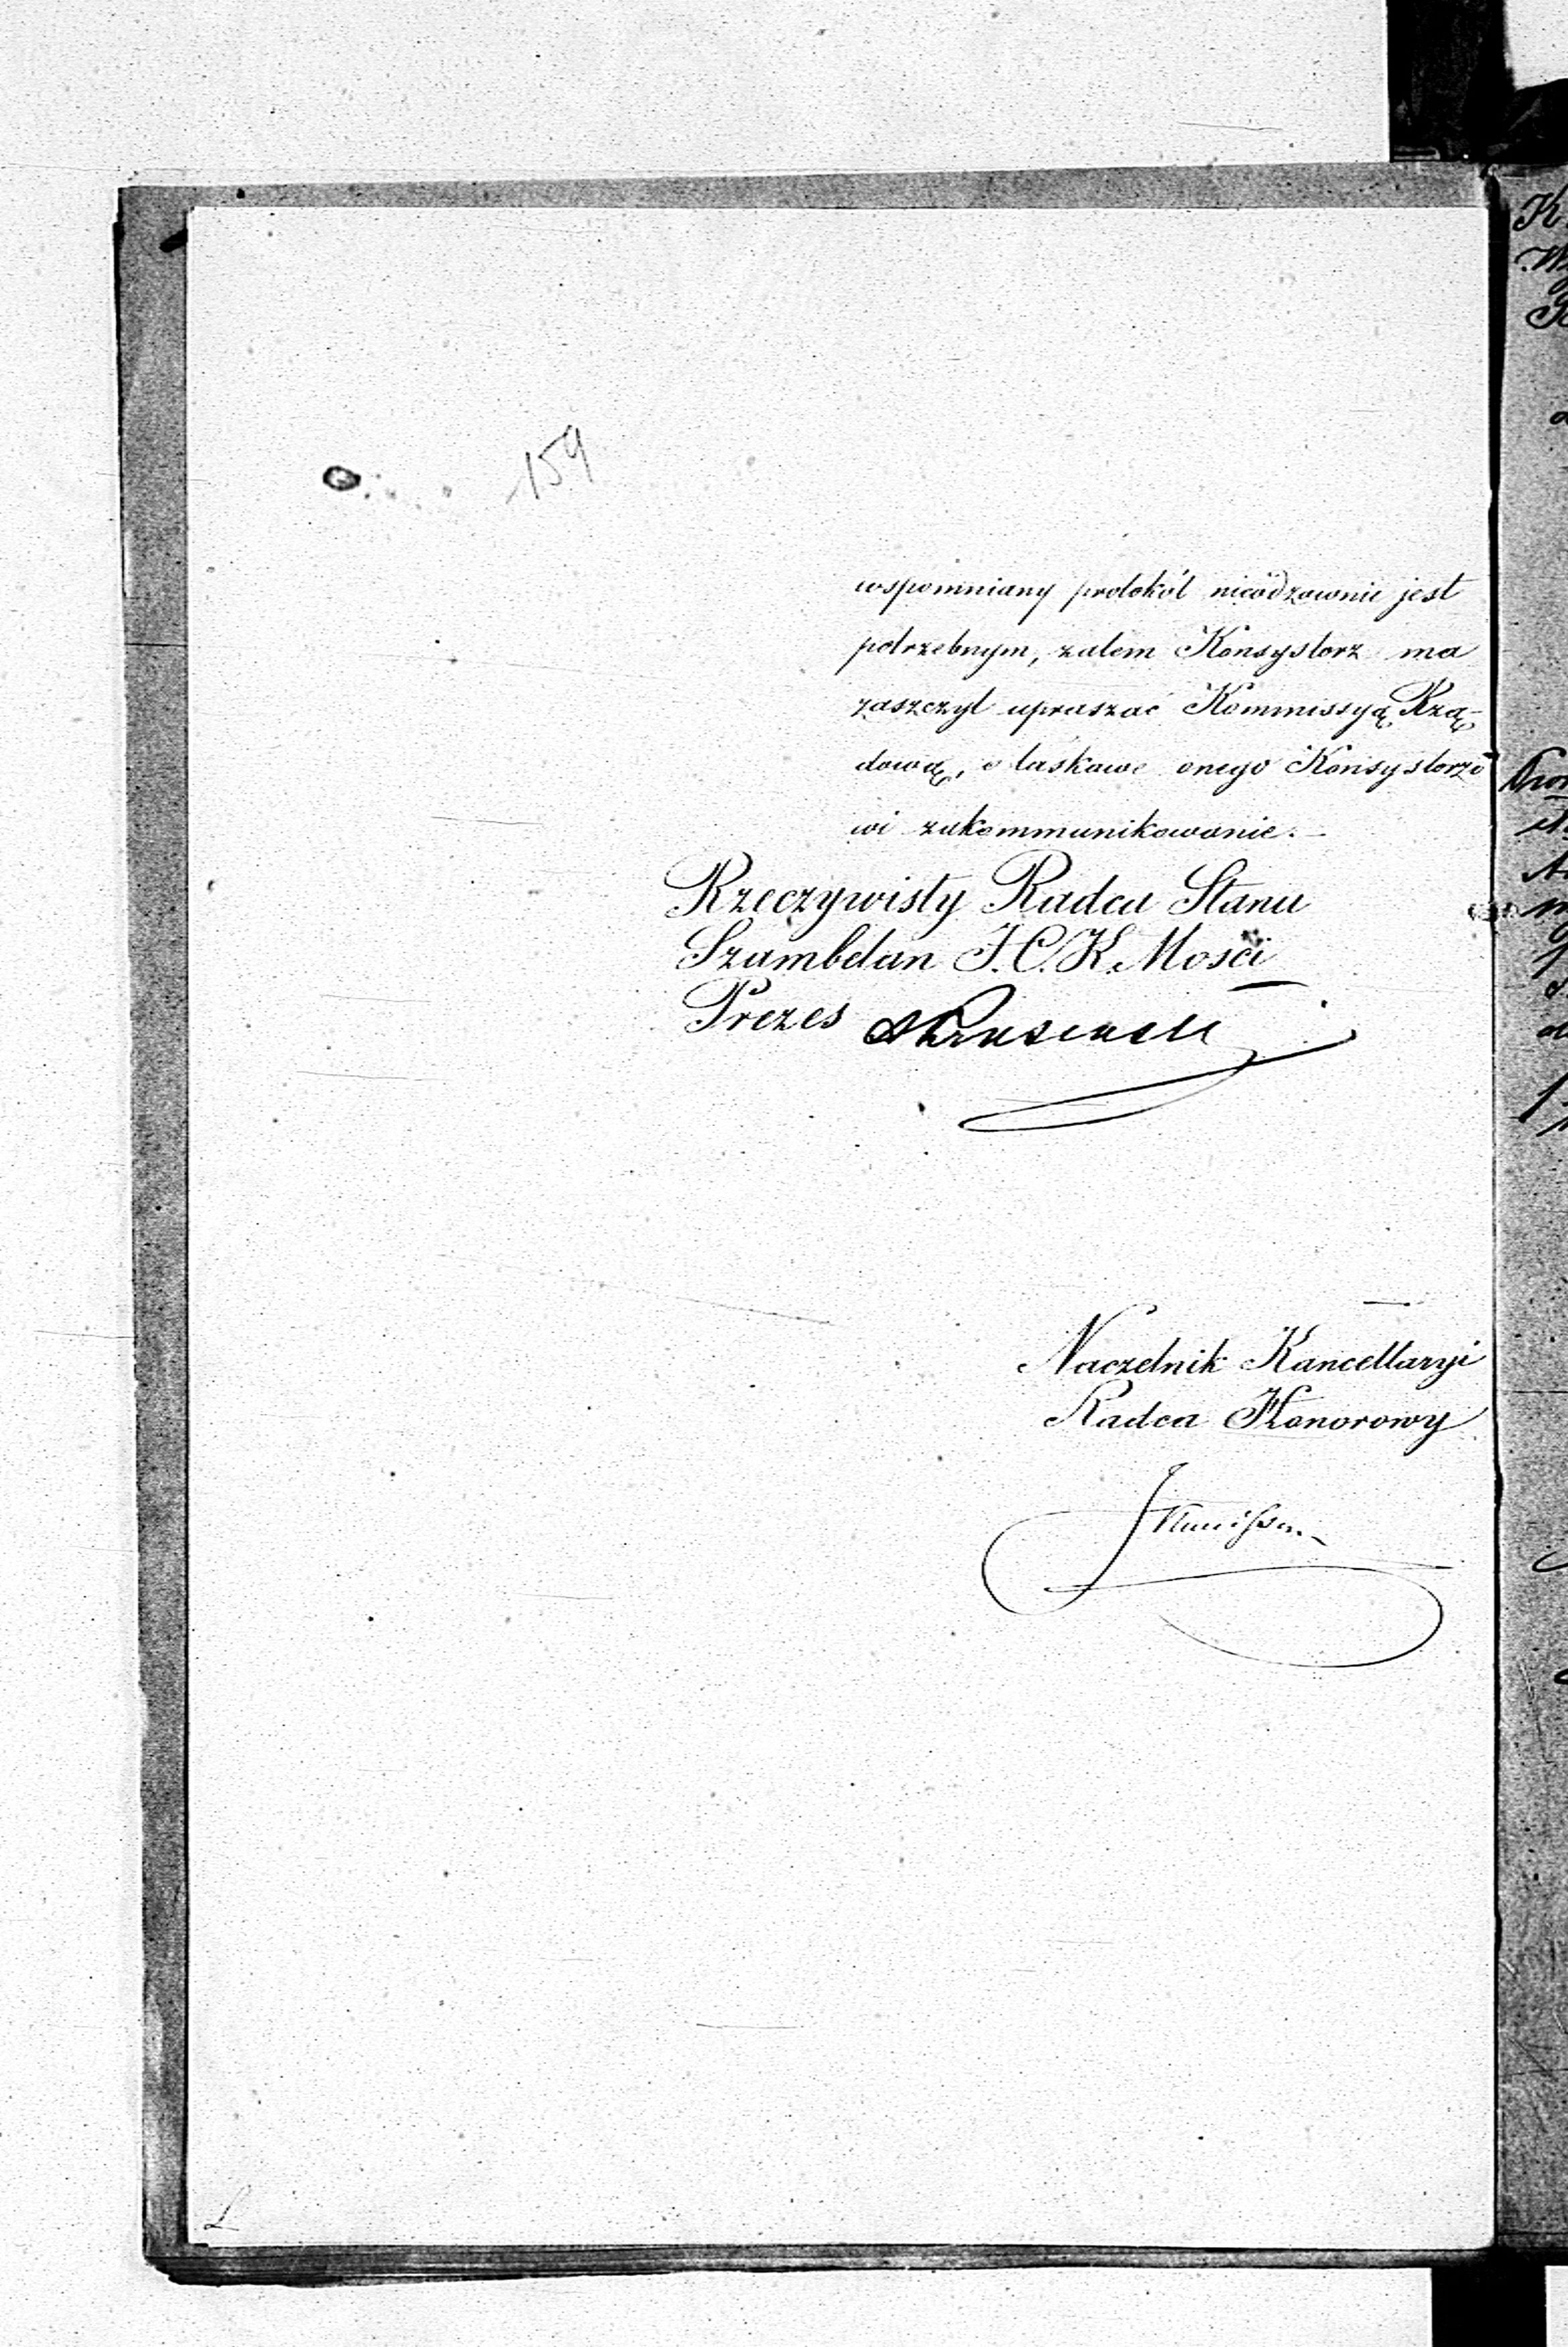 159
wspomniany protokół nieodzownie jest
potrzebnym, zatem Konsystorz ma
zaszczyt upraszać Kommissyą Rzą-
dową, o łaskawe onego Konsystorzo
wi zakommunikowanie. —
Rzeczywisty Radca Stanu
Szambelan J. C. K. Mości
Prezes
Naczelnik Kancellaryi
Radca Honorowy